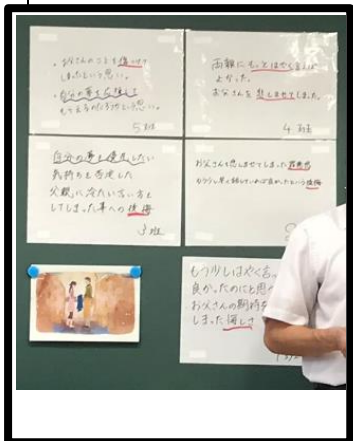 ・お父さんのことを傷つけて
しまったという思い。
・自分の夢を応援して
もらえるのだろうかという思い。
5班
両親にもっとはやく言えば
よかった。
お父さんを悲しませてしまった。
4班
自分の夢を優先したい
気持ちを否定した
父親に冷たい言い方を
してしまった事への後悔
3班
お父さんを悲しませてしまった罪悪感
もう少し早く話していれば良かったという後悔
もう少しはやく言
良かったのにと思
お父さんの期待を
しまった悔しさ